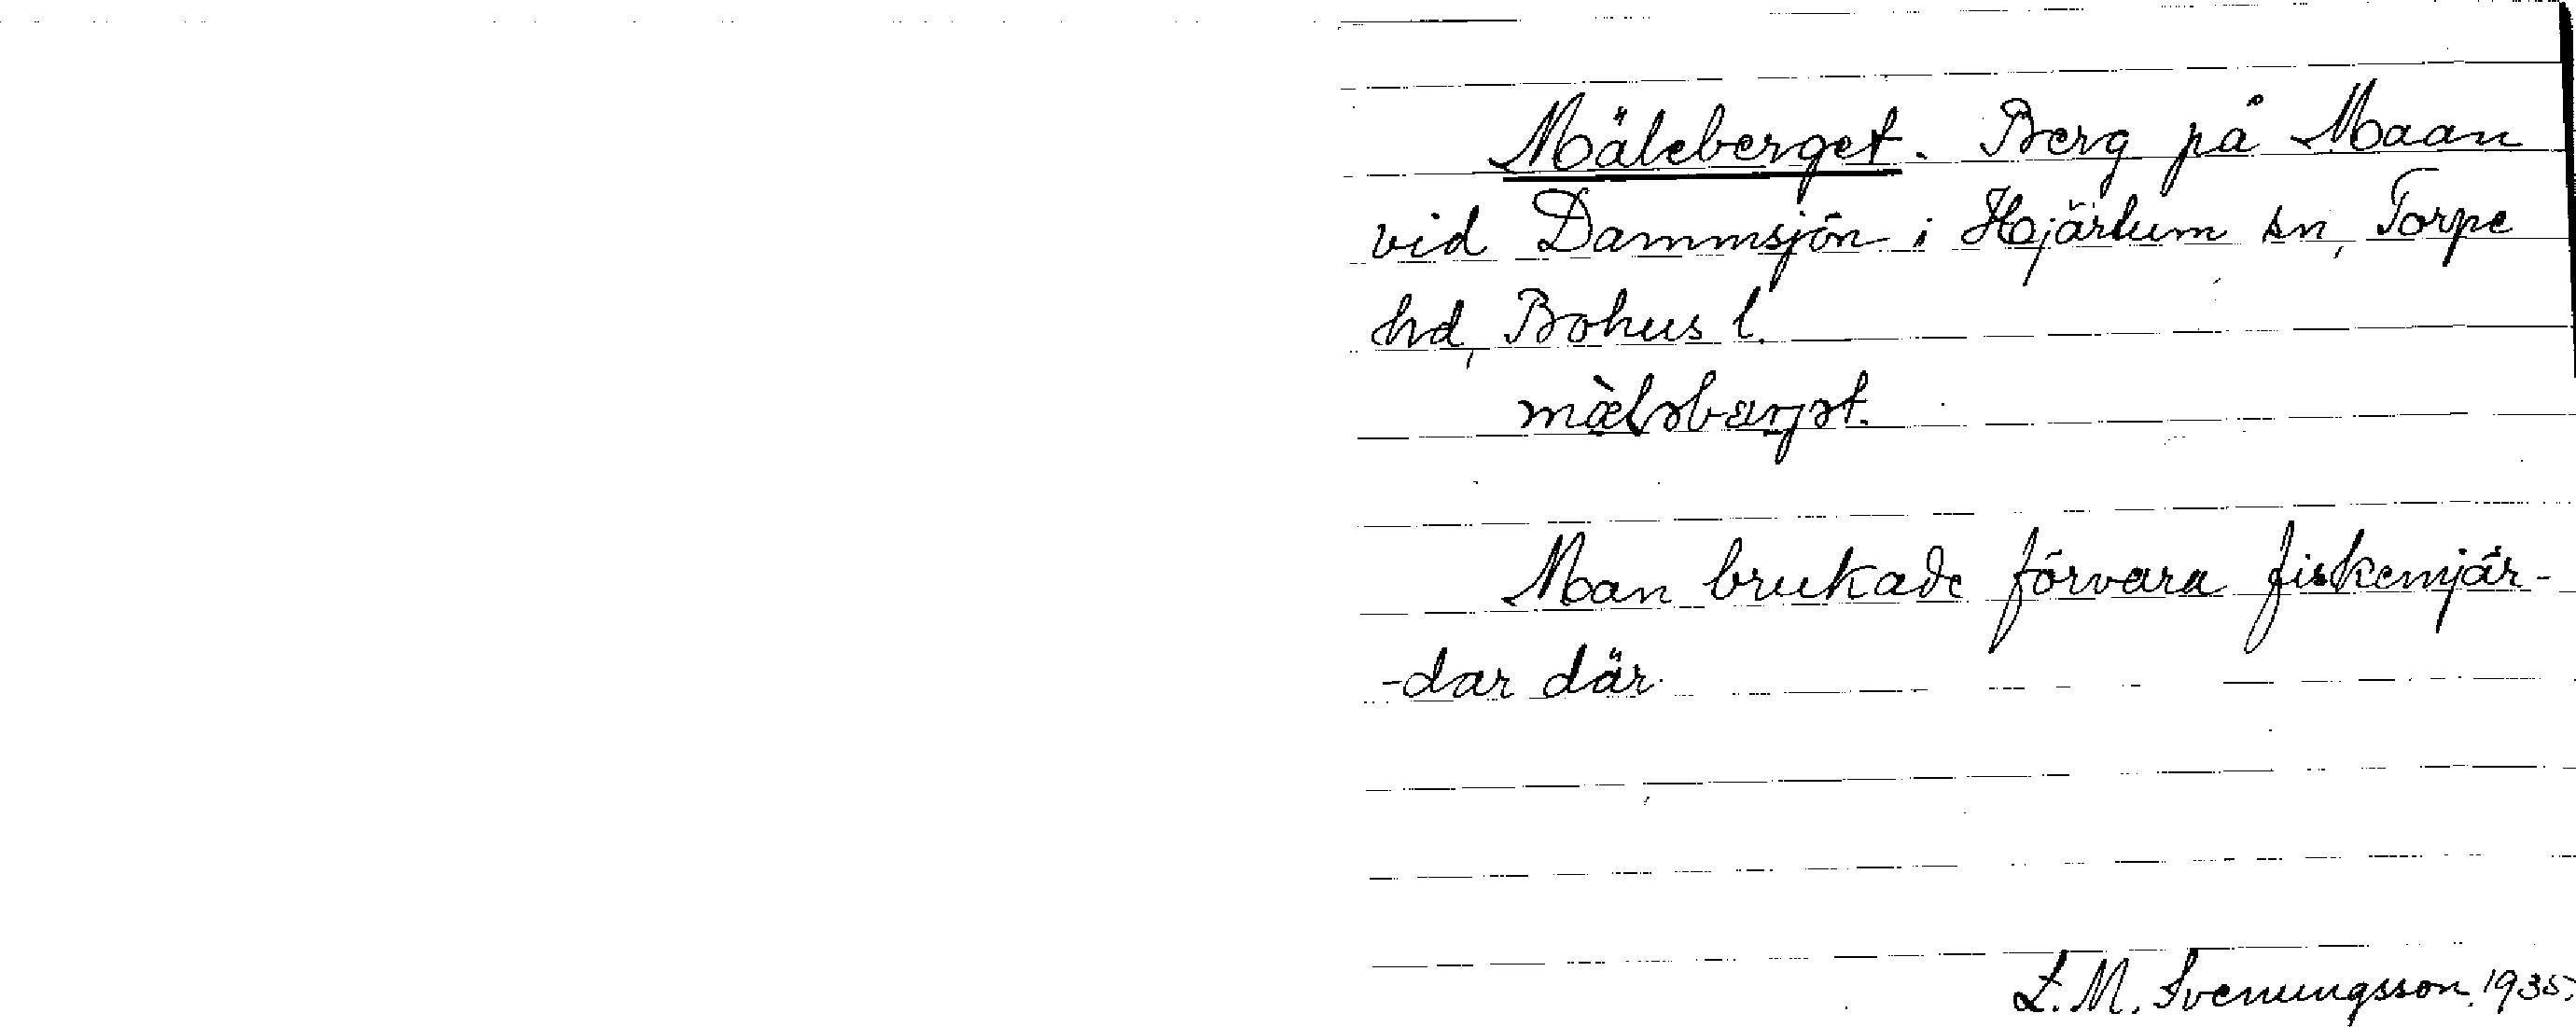 Mäleberget. Berg på Maan
vid Dammsjön i Hjärtum sn, Torpe
hd, Bohus l.
Man brukade förvara fiskemjär-
-dar där
L.M. Svenungsson. 1935.